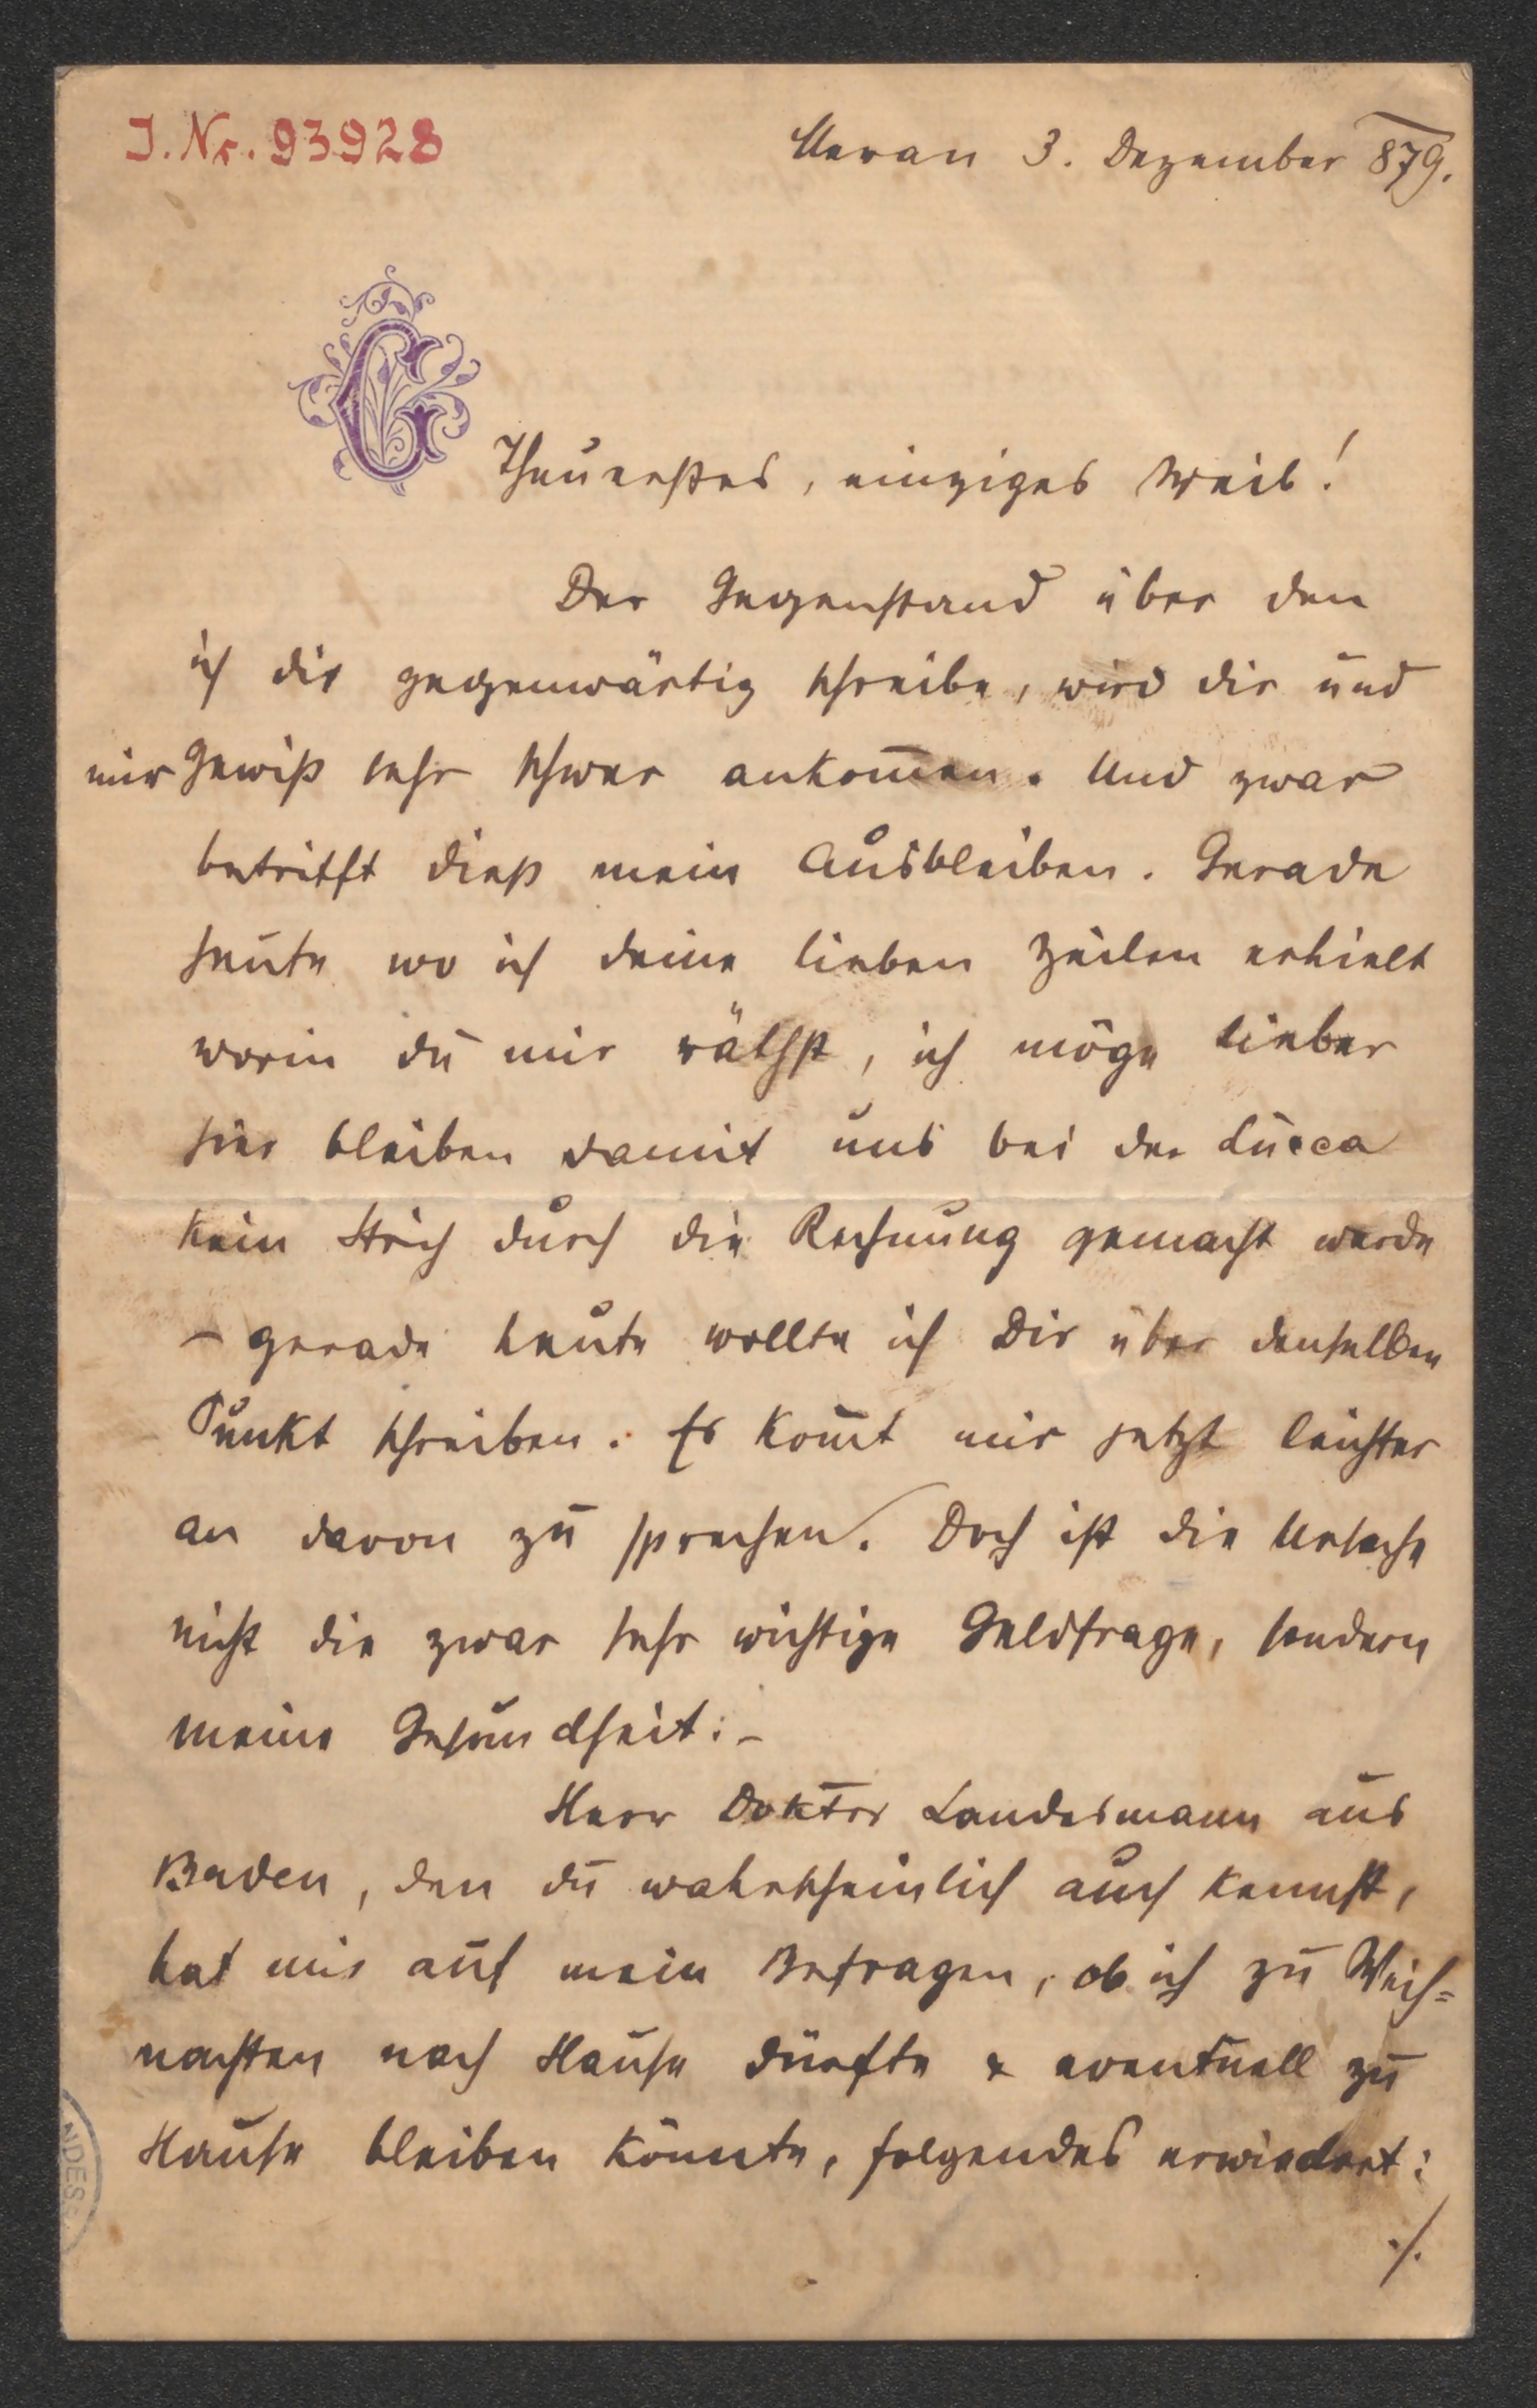 J. Nr. 93928
Meran 3. Dezember 879.
G
Theuerstes, einziges Weib!
Der Gegenstand über den
ich dir gegenwärtig schreibe, wird dir und
mir gewiß sehr schwer ankom̅en. Und zwar
betrifft dieß mein Ausbleiben. Gerade
heute wo ich deine lieben Zeilen erhielt
worin du mir räthst, ich möge lieber
hier bleiben damit uns bei der Lucca
kein Strich durch die Rechnung gemacht werde
– gerade heute wollte ich Dir über denselben
Punkt schreiben. Es kom̅t mir jetzt leichter
an davon zu sprechen. Doch ist die Ursache
nicht die zwar sehr wichtige Geldfrage, sondern
meine Gesundheit: –
Herr Doktor Landesmann aus
Baden, den du wahrscheinlich auch kennst,
hat mir auf mein Befragen, ob ich zu Weih=
nachten nach Hause dürfte & eventuell zu
Hause bleiben könnte, folgendes erwiedert:
./.
NDES